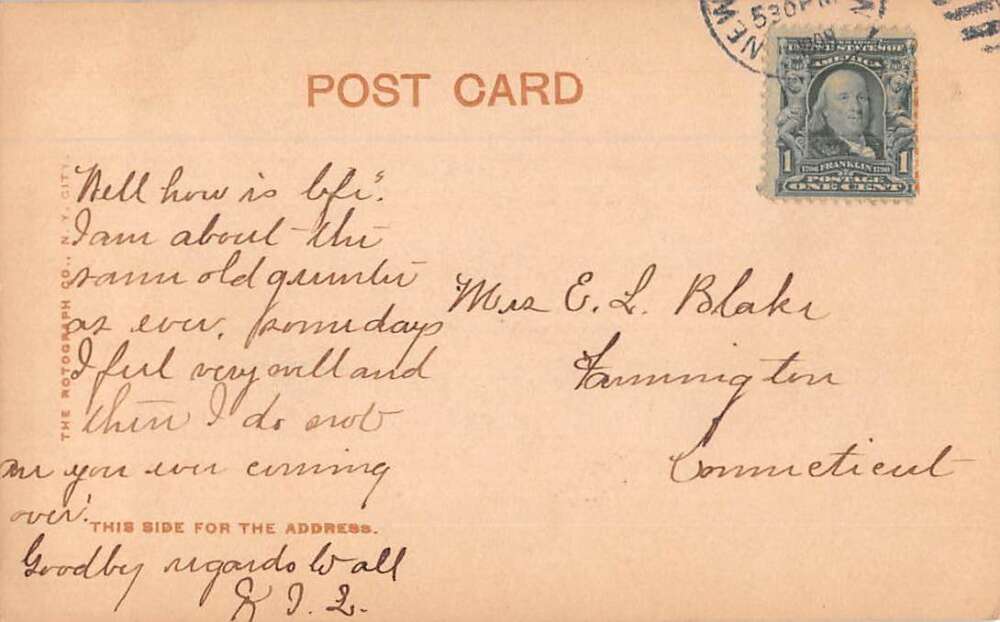 NEW
530 PM
POST CARD
UNITED STATES OF
AMERICA
1 1
1706 FRANKLIN 1790
POSTAGE
ONE CENT
THE ROTOGRAPH CO., N. Y. CITY.
Well how is life.
I am about the
same old
as ever, some days
I feel very well and
then I do not
are you ever coming
over.
THIS SIDE FOR THE ADDRESS.
Goodby regards to all
Mrs E. L. Blake
Farmington
Connecticut